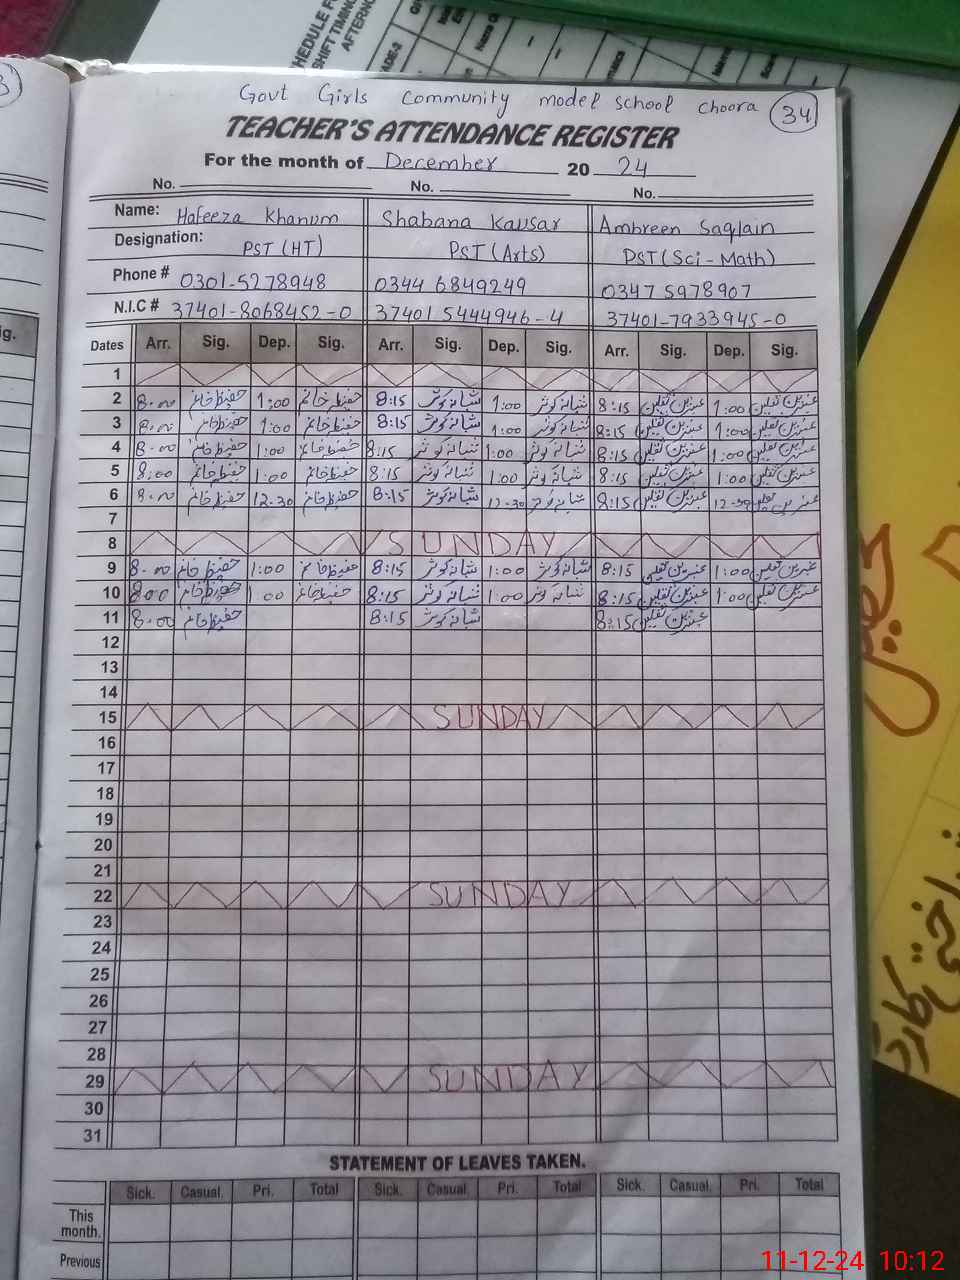 HEDULE F
SHIFT TIMING
AFTERNO
ADE-2
Govt Girls Community model school choora 34
TEACHER'S ATTENDANCE REGISTER
For the month of December 20 24
No. No. No.
Name: Hafeeza Khanum Shabana Kausar Ambreen Saqlain
Designation: PST (HT) PST (Arts) PST (Sci-Math)
Phone # 0301-5278948 0344 6849249 0347 5978907
N.I.C # 37401-8068452-0 37401 5444946-4 37401-7933945-0
Dates Arr. Sig. Dep. Sig. Arr. Sig. Dep. Sig. Arr. Sig. Dep. Sig.
1
2 8.00 حفیظہ خانم 1:00 حفیظہ خانم 8:15 شبانہ کوثر 1:00 شبانہ کوثر 8:15 عنبرین ثقلین 1:00 عنبرین ثقلین
3 8.00 حفیظہ خانم 1:00 حفیظہ خانم 8:15 شبانہ کوثر 1:00 شبانہ کوثر 8:15 عنبرین ثقلین 1:00 عنبرین ثقلین
4 8.00 حفیظہ خانم 1:00 حفیظہ خانم 8:15 شبانہ کوثر 1:00 شبانہ کوثر 8:15 عنبرین ثقلین 1:00 عنبرین ثقلین
5 8.00 حفیظہ خانم 1:00 حفیظہ خانم 8:15 شبانہ کوثر 1:00 شبانہ کوثر 8:15 عنبرین ثقلین 1:00 عنبرین ثقلین
6 8.00 حفیظہ خانم 12.30 حفیظہ خانم 8:15 شبانہ کوثر 12.30 شبانہ کوثر 8:15 عنبرین ثقلین 12.30 عنبرین ثقلین
7
8 SUNDAY
9 8.00 حفیظہ خانم 1:00 حفیظہ خانم 8:15 شبانہ کوثر 1:00 شبانہ کوثر 8:15 عنبرین ثقلین 1:00 عنبرین ثقلین
10 8.00 حفیظہ خانم 1:00 حفیظہ خانم 8:15 شبانہ کوثر 1:00 شبانہ کوثر 8:15 عنبرین ثقلین 1:00 عنبرین ثقلین
11 8.00 حفیظہ خانم 8:15 شبانہ کوثر 8:15 عنبرین ثقلین
12
13
14
15 SUNDAY
16
17
18
19
20
21
22 SUNDAY
23
24
25
26
27
28
29 SUNDAY
30
31
STATEMENT OF LEAVES TAKEN.
Sick. Casual. Pri. Total Sick. Casual. Pri. Total Sick. Casual. Pri. Total
This
month.
Previous
11-12-24 10:12